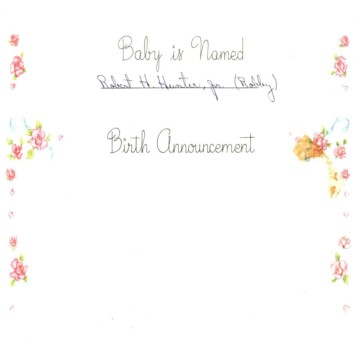 Baby is Named
Robert H. Hunter, Jr. (Robby)
Birth Announcement